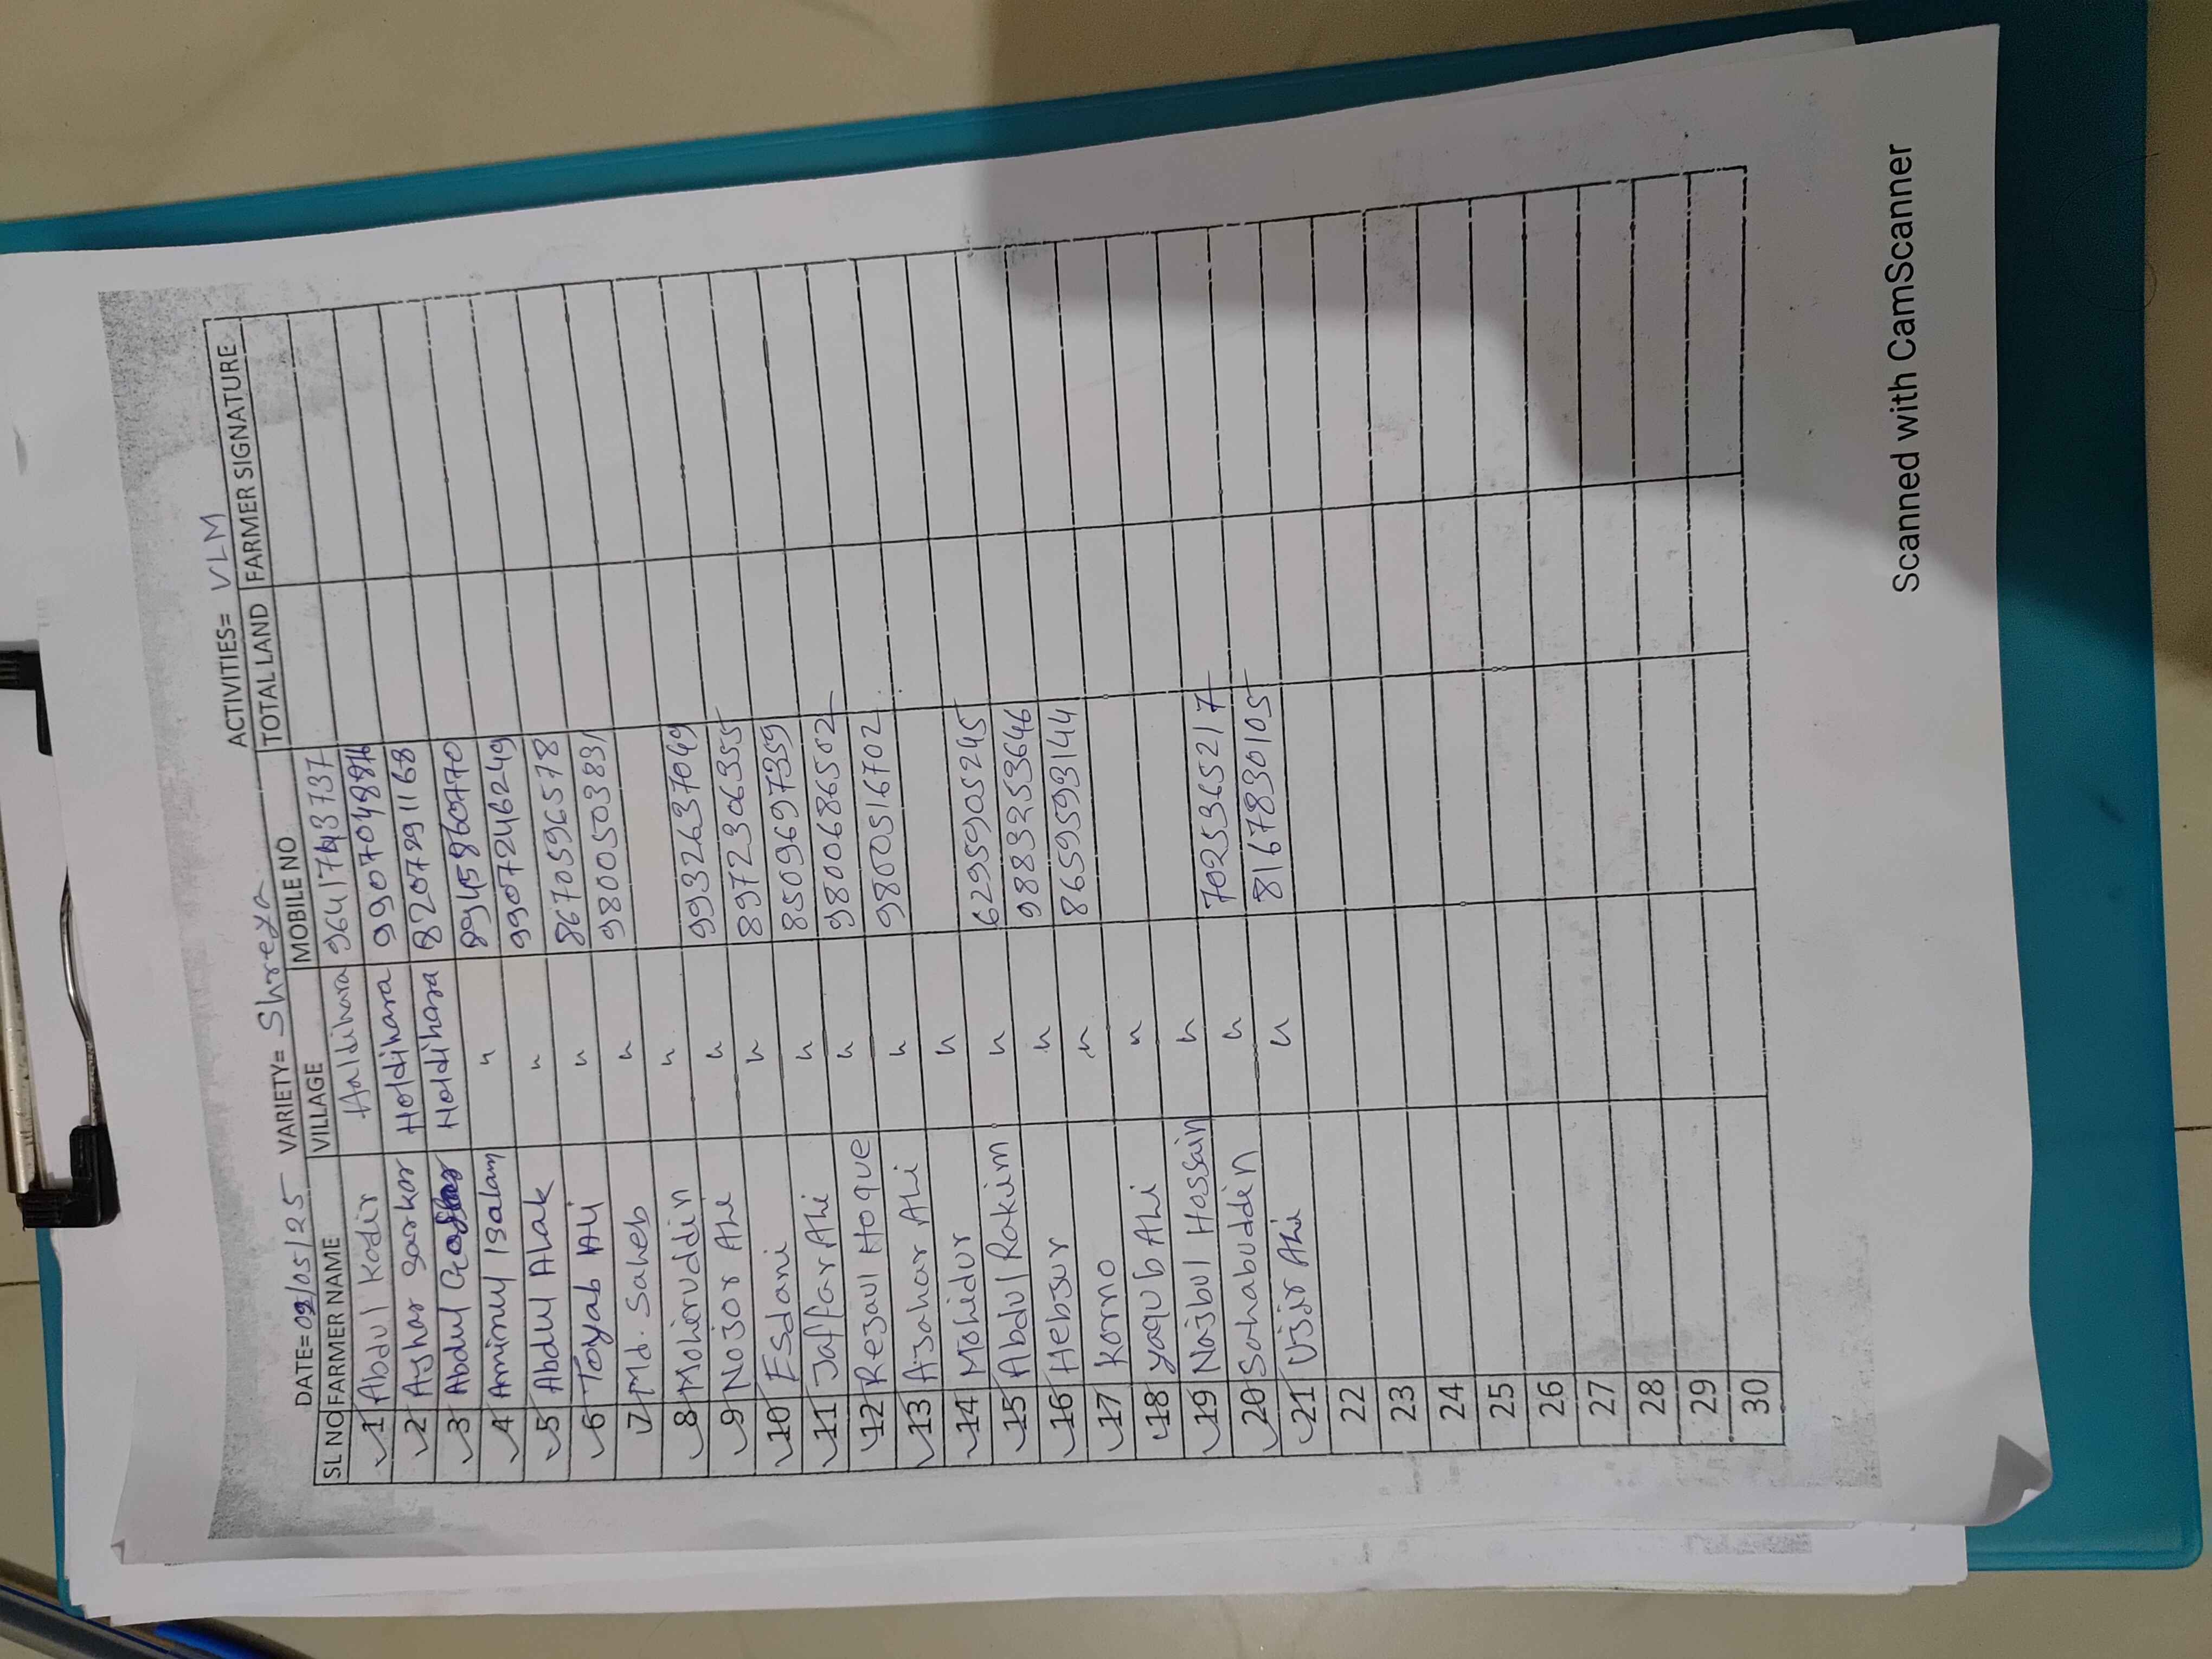 DATE=02/05/25 VARIETY= Shreya ACTIVITIES= VLM
SL NO FARMER NAME VILLAGE MOBILE NO TOTAL LAND FARMER SIGNATURE
1 Abdul Kadir Haldihara
2 Aynar Sarkar Holdihara
3 Abdul Holdihara 8207291168
4 Aminul Isalam " 8945860770
5 Abdul Alak " 9907246249
6 Toyab Ali " 8670596578
7 Md. Saheb " 9800503831
8 Moheruddin "
9 Nojor Ali " 9932637049
10 Esdani " 8972306355
11 Jaffar Ali " 8509697359
12 Rezaul Hoque " 9800686502
13 Azahar Ali " 9800516702
14 Mohidur "
15 Abdul Rakim " 6295905245
16 Hebsur " 9883253646
17 Korno " 8659593144
18 yaqub Ali "
19 Najbul Hossain "
20 Sahabuddin " 7025365217
21 Ujir Ali " 8167830105
22
23
24
25
26
27
28
29
30
Scanned with CamScanner